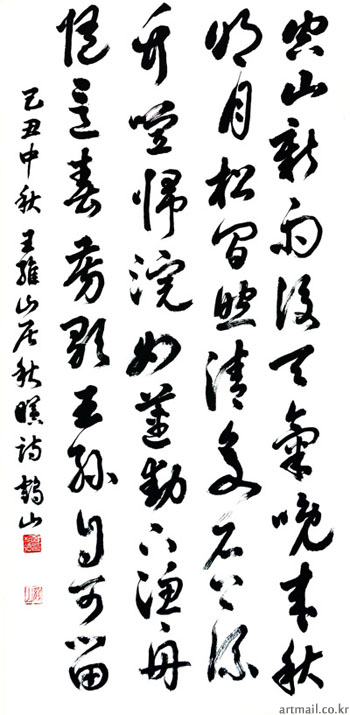 空山新雨後天氣晚來秋
明月松間照清泉石上流
竹喧歸浣女蓮動下漁舟
隨意春芳歇王孫自可留
己丑中秋王維山居秋暝詩鶴山
artmail.co.kr